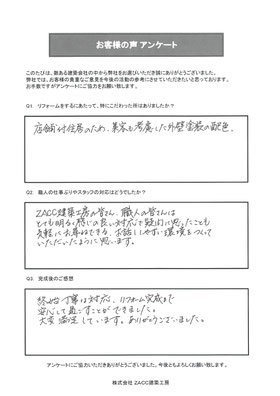 お客様の声 アンケート
このたびは、数ある建築会社の中から弊社をお選びいただき誠にありがとうございました。
弊社では、お客様の貴重なご意見を今後の活動の参考にさせていただきたいと思っております。
お手数ですがアンケートにご協力をお願い致します。
Q1. リフォームをするにあたって、特にこだわった所はありましたか？
店舗付住居のため、集客も考慮した外壁塗装の配色。
Q2. 職人の仕事ぶりやスタッフの対応はどうでしたか？
ZACC建築工房の皆さん、職人の皆さんは
とても明るく感じの良い対応で疑問に思ったことも
気軽にお尋ねできる、お話ししやすい環境をつくって
いただいたように思います。
Q3. 完成後のご感想
終始丁寧な対応、リフォーム完成まで
安心して過ごすことができました。
大変満足しています。ありがとうございました。
アンケートにご協力いただきありがとうございました。今後ともよろしくお願い致します。
株式会社 ZACC建築工房